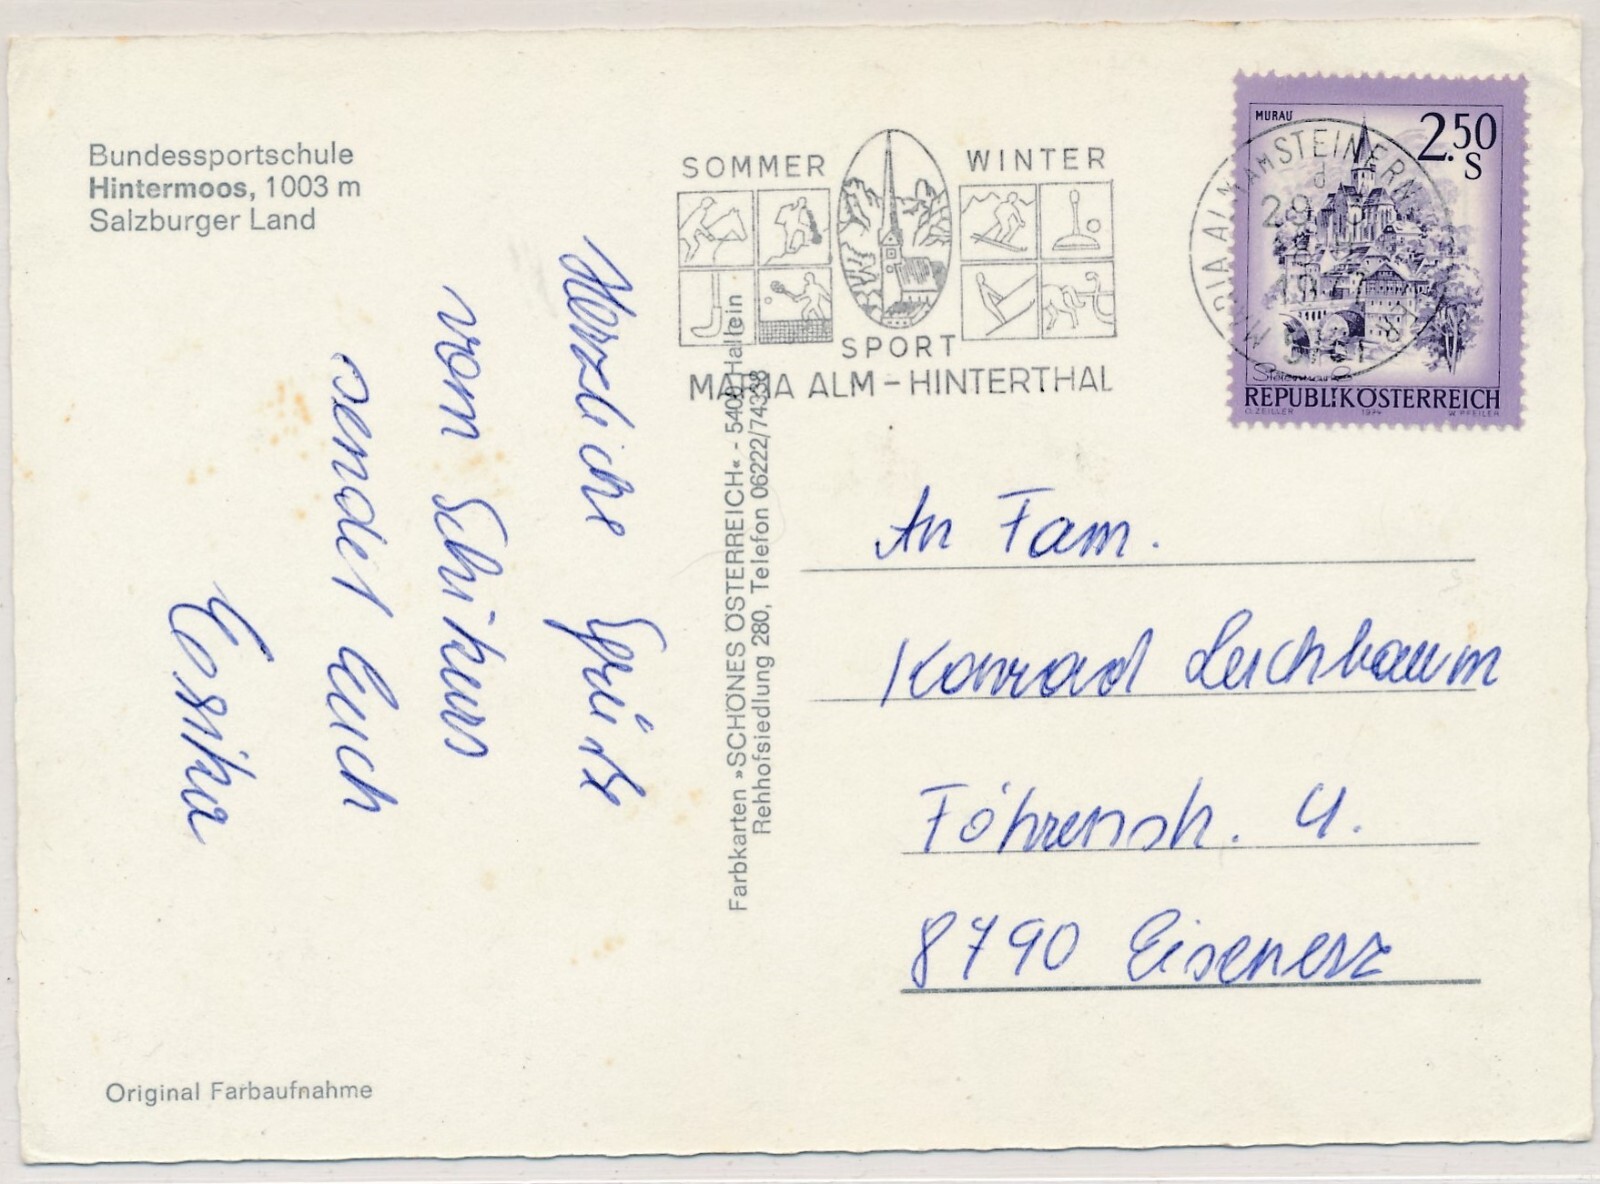 Bundessportschule
Hintermoos, 1003 m
Salzburger Land
Herzliche Grüße
vom Schikurs
sendet Euch
Erika
Original Farbaufnahme
Farbkarten »SCHÖNES ÖSTERREICH« - 5400 Hallein
Rehhofsiedlung 280, Telefon 06222/74338
SOMMER WINTER
SPORT
MARIA ALM – HINTERTHAL
MARIA ALM AM STEINERN
MURAU
2.50
S
Steiermark
REPUBLIK ÖSTERREICH
O. ZEILER 1974 W. PFEILER
An Fam.
Konrad Leichbaum
Föhrenstr. 4.
8790 Eisenerz